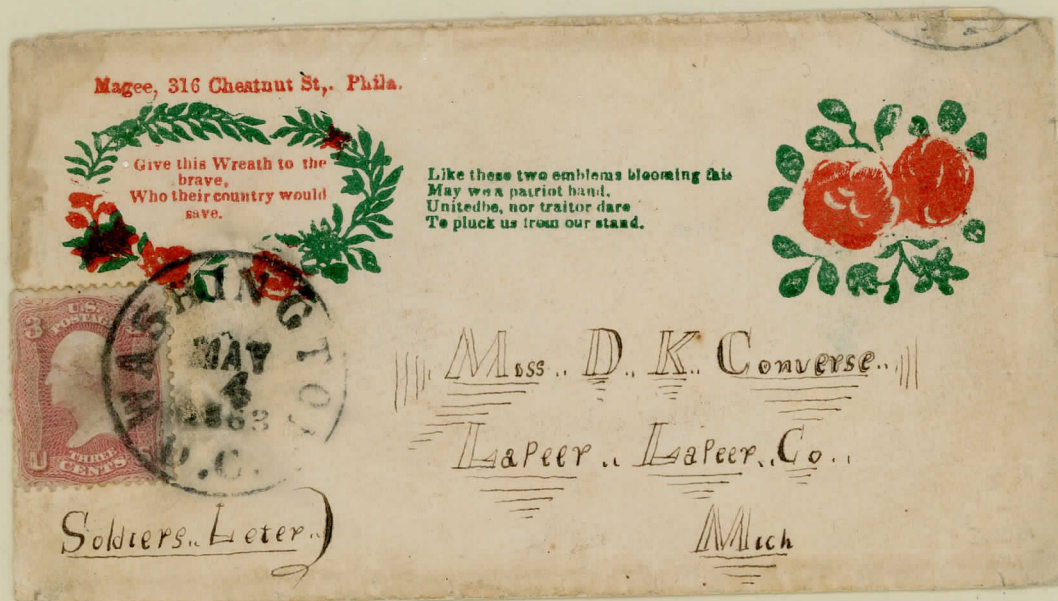 Magee, 316 Chestnut St,. Phila.
Give this Wreath to the
brave,
Who their country would
save.
Like these two emblems blooming this
May we a patriot band.
Unitedbe, nor traitor dare
To pluck us from our stand.
U.S.
POSTAGE
3
U
THREE
CENTS
WASHINGTON
MAY
4
1863
D.C.
Miss.. D.. K.. Converse..
LaPeer.. LaPeer.. Co..
Mich
Soldiers.. Leter..)